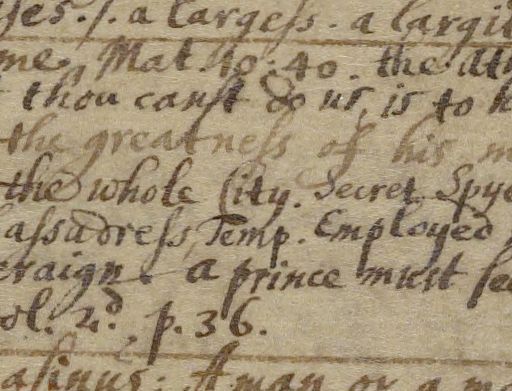 . a largess . a largit
me, Mat. 10. 40. the
thou canst do us, is to
the greatness of his m
the whole City. Secret Spye
assadress, Temp. Employed
eraign. a prince must see
ol. 2d. p. 36.
asinus. A man or a